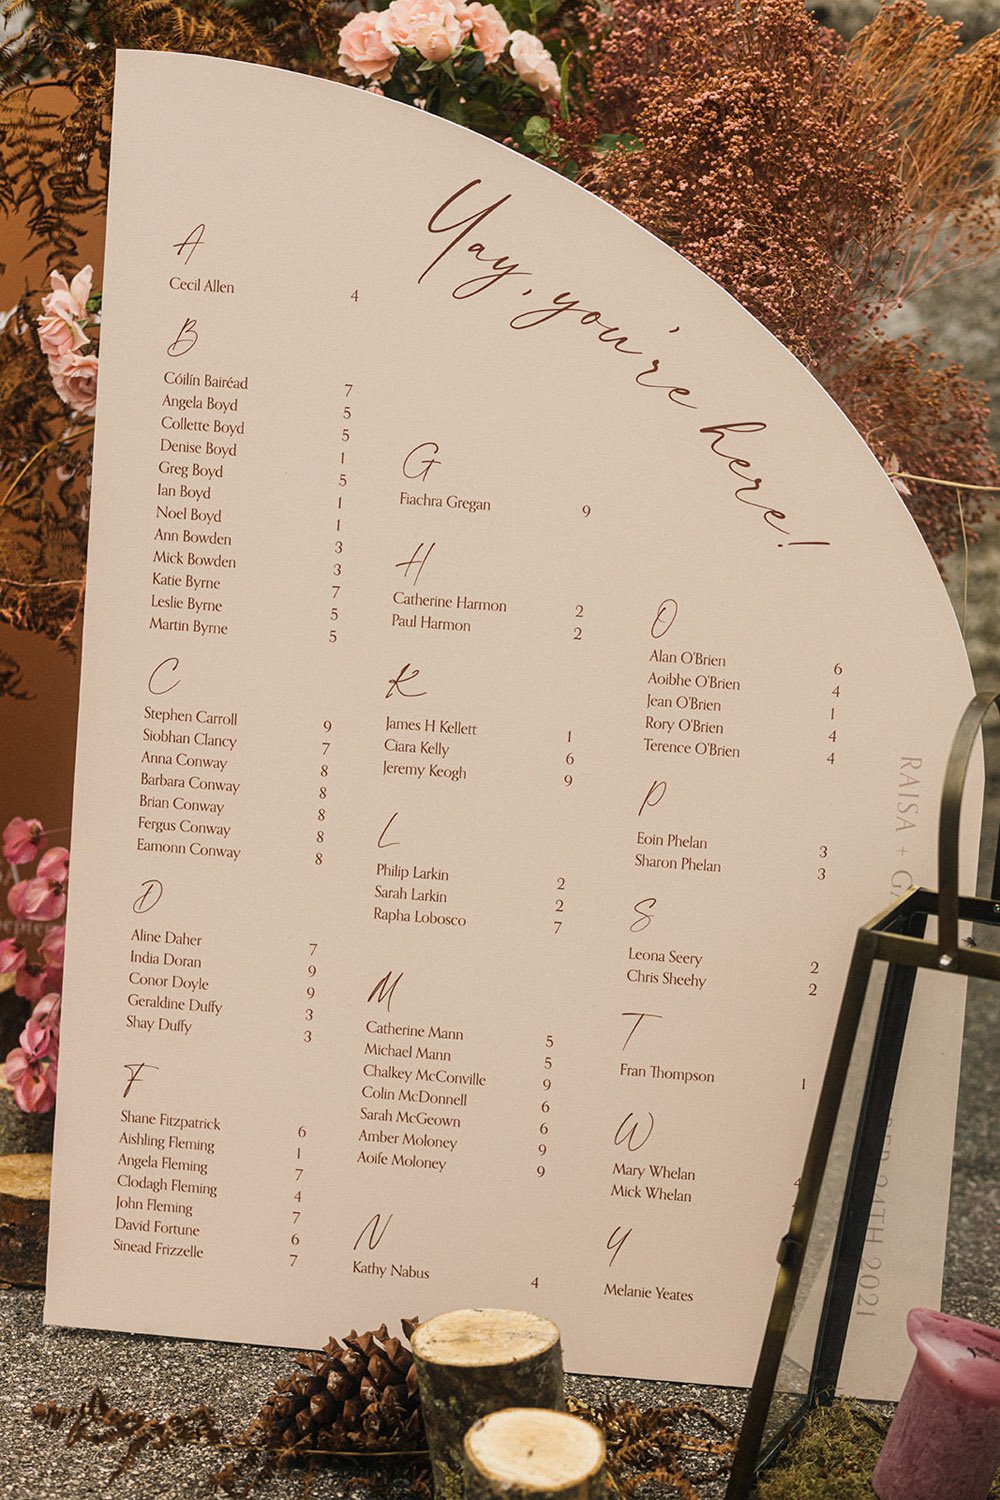 Yay, you're here!
A
Cecil Allen 4
B
Cóilín Bairéad 7
Angela Boyd 5
Collette Boyd 5
Denise Boyd 1
Greg Boyd 5
Ian Boyd 1
Noel Boyd 1
Ann Bowden 3
Mick Bowden 3
Katie Byrne 7
Leslie Byrne 5
Martin Byrne 5
C
Stephen Carroll 9
Siobhan Clancy 7
Anna Conway 8
Barbara Conway 8
Brian Conway 8
Fergus Conway 8
Eamonn Conway 8
D
Aline Daher 7
India Doran 9
Conor Doyle 9
Geraldine Duffy 3
Shay Duffy 3
F
Shane Fitzpatrick 6
Aishling Fleming 1
Angela Fleming 7
Clodagh Fleming 4
John Fleming 7
David Fortune 6
Sinead Frizzelle 7
G
Fiachra Gregan 9
H
Catherine Harmon 2
Paul Harmon 2
K
James H Kellett 1
Ciara Kelly 6
Jeremy Keogh 9
L
Philip Larkin 2
Sarah Larkin 2
Rapha Lobosco 7
M
Catherine Mann 5
Michael Mann 5
Chalkey McConville 9
Colin McDonnell 6
Sarah McGeown 6
Amber Moloney 9
Aoife Moloney 9
N
Kathy Nabus 4
O
Alan O'Brien 6
Aoibhe O'Brien 4
Jean O'Brien 1
Rory O'Brien 4
Terence O'Brien 4
P
Eoin Phelan 3
Sharon Phelan 3
S
Leona Seery 2
Chris Sheehy 2
T
Fran Thompson 1
W
Mary Whelan 4
Mick Whelan
Y
Melanie Yeates
RAISA +
24TH 2021